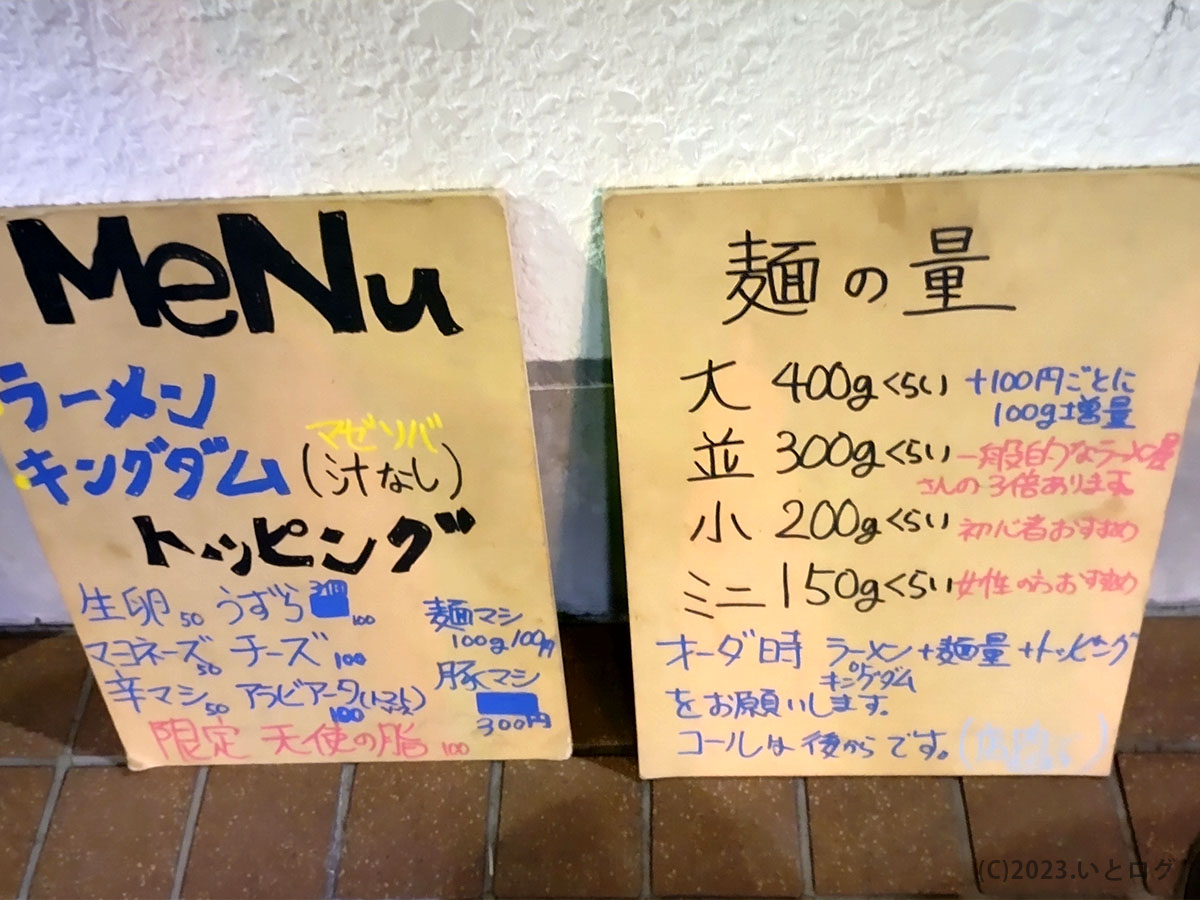 MeNu
ラーメン
マゼソバ
キングダム(汁なし)
トッピング
生卵50 うずら 100
マヨネーズ50 チーズ100
辛マシ50 アラビアータ 100
限定 天使の脂 100
麺マシ
100g/100円
豚マシ
300円
麺の量
大 400gくらい +100円ごとに
100g増量
並 300gくらい 一般的なラーメン屋
さんの3倍あります。
小 200gくらい 初心者おすすめ
ミニ 150gくらい 女性の方おすすめ
オーダ時 ラーメン+麺量+トッピング
or
キングダム
をお願いします。
コールは後からです。
(C)2023.いとログ